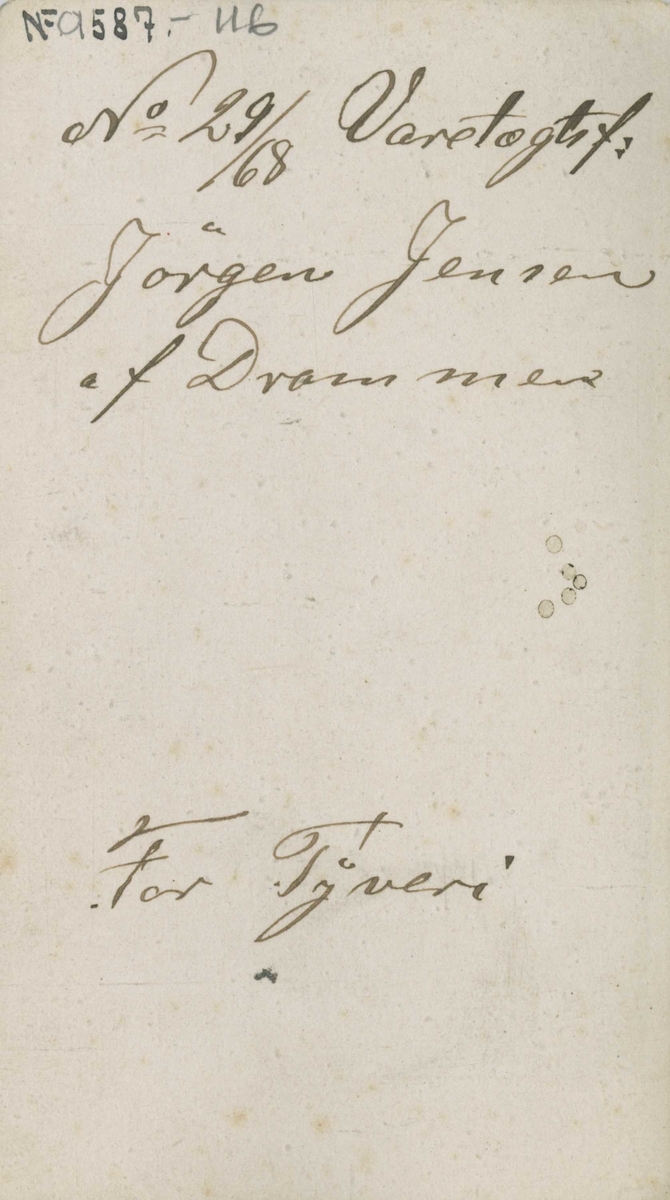 No 9587.- 116
No 29/68 Varetægtsf:
Jörgen Jensen
af Drammen
For Tÿveri